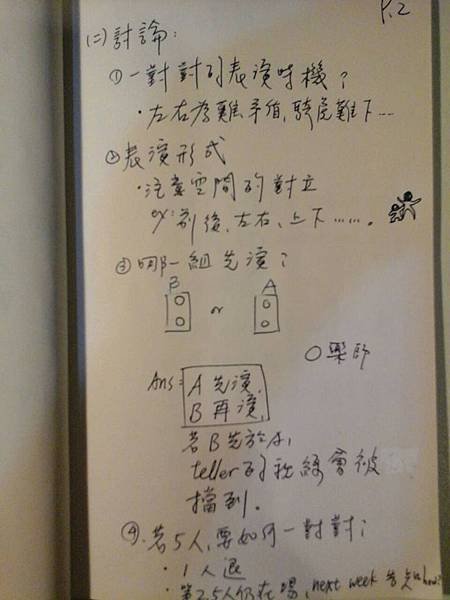 P.2
(二)討論:
①一對對的表演時機?
・左右為難、矛盾、騎虎難下…
②表演形式
・注意空間的對立
ex:前後、左右、上下……。
③哪一組先演?
B A
or
○樂師
Ans: A先演,
B再演,
若B先於A,
teller的視線會被
擋到。
④若5人,要如何一對對?
・1人退
・第2.5人仍在場, next week